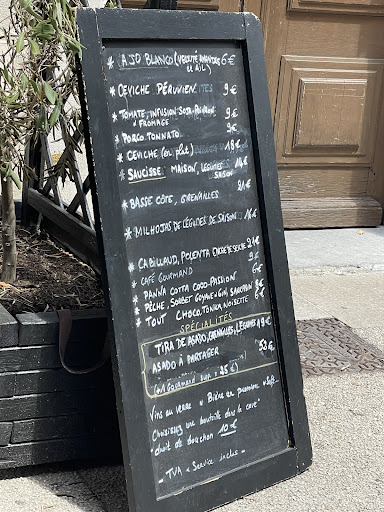 * AJO BLANCO (VELOUTÉ AMANDES 6€
et AIL)
* CEVICHE PÉRUVIEN 9€
* TOMATE, INFUSION SOJA-POIVRON 9€
& FROMAGE
* PORCO TONNATO 9€
* CEVICHE (en plat) 18€
* SAUCISSE MAISON, LÉGUMES 14€
SAISON
* BASSE CÔTE, GRENAILLES 21€
* MILHOJAS DE LÉGUMES DE SAISON 16€
* CABILLAUD, POLENTA 21€
* CAFÉ GOURMAND 9€
* PANNA COTTA COCO-PASSION 6€
* PÊCHE SORBET GOYAVE 8€
* TOUT CHOCO, TONKA NOISETTE 8€
SPÉCIALITÉS
TIRA DE ASADO, GRENAILLES, LÉGUMES 19€
ASADO À PARTAGER 53€
Vins au verre & Bière en pression
Choisissez une bouteille dans la cave
droit de bouchon 10€
- TVA & Service inclus -